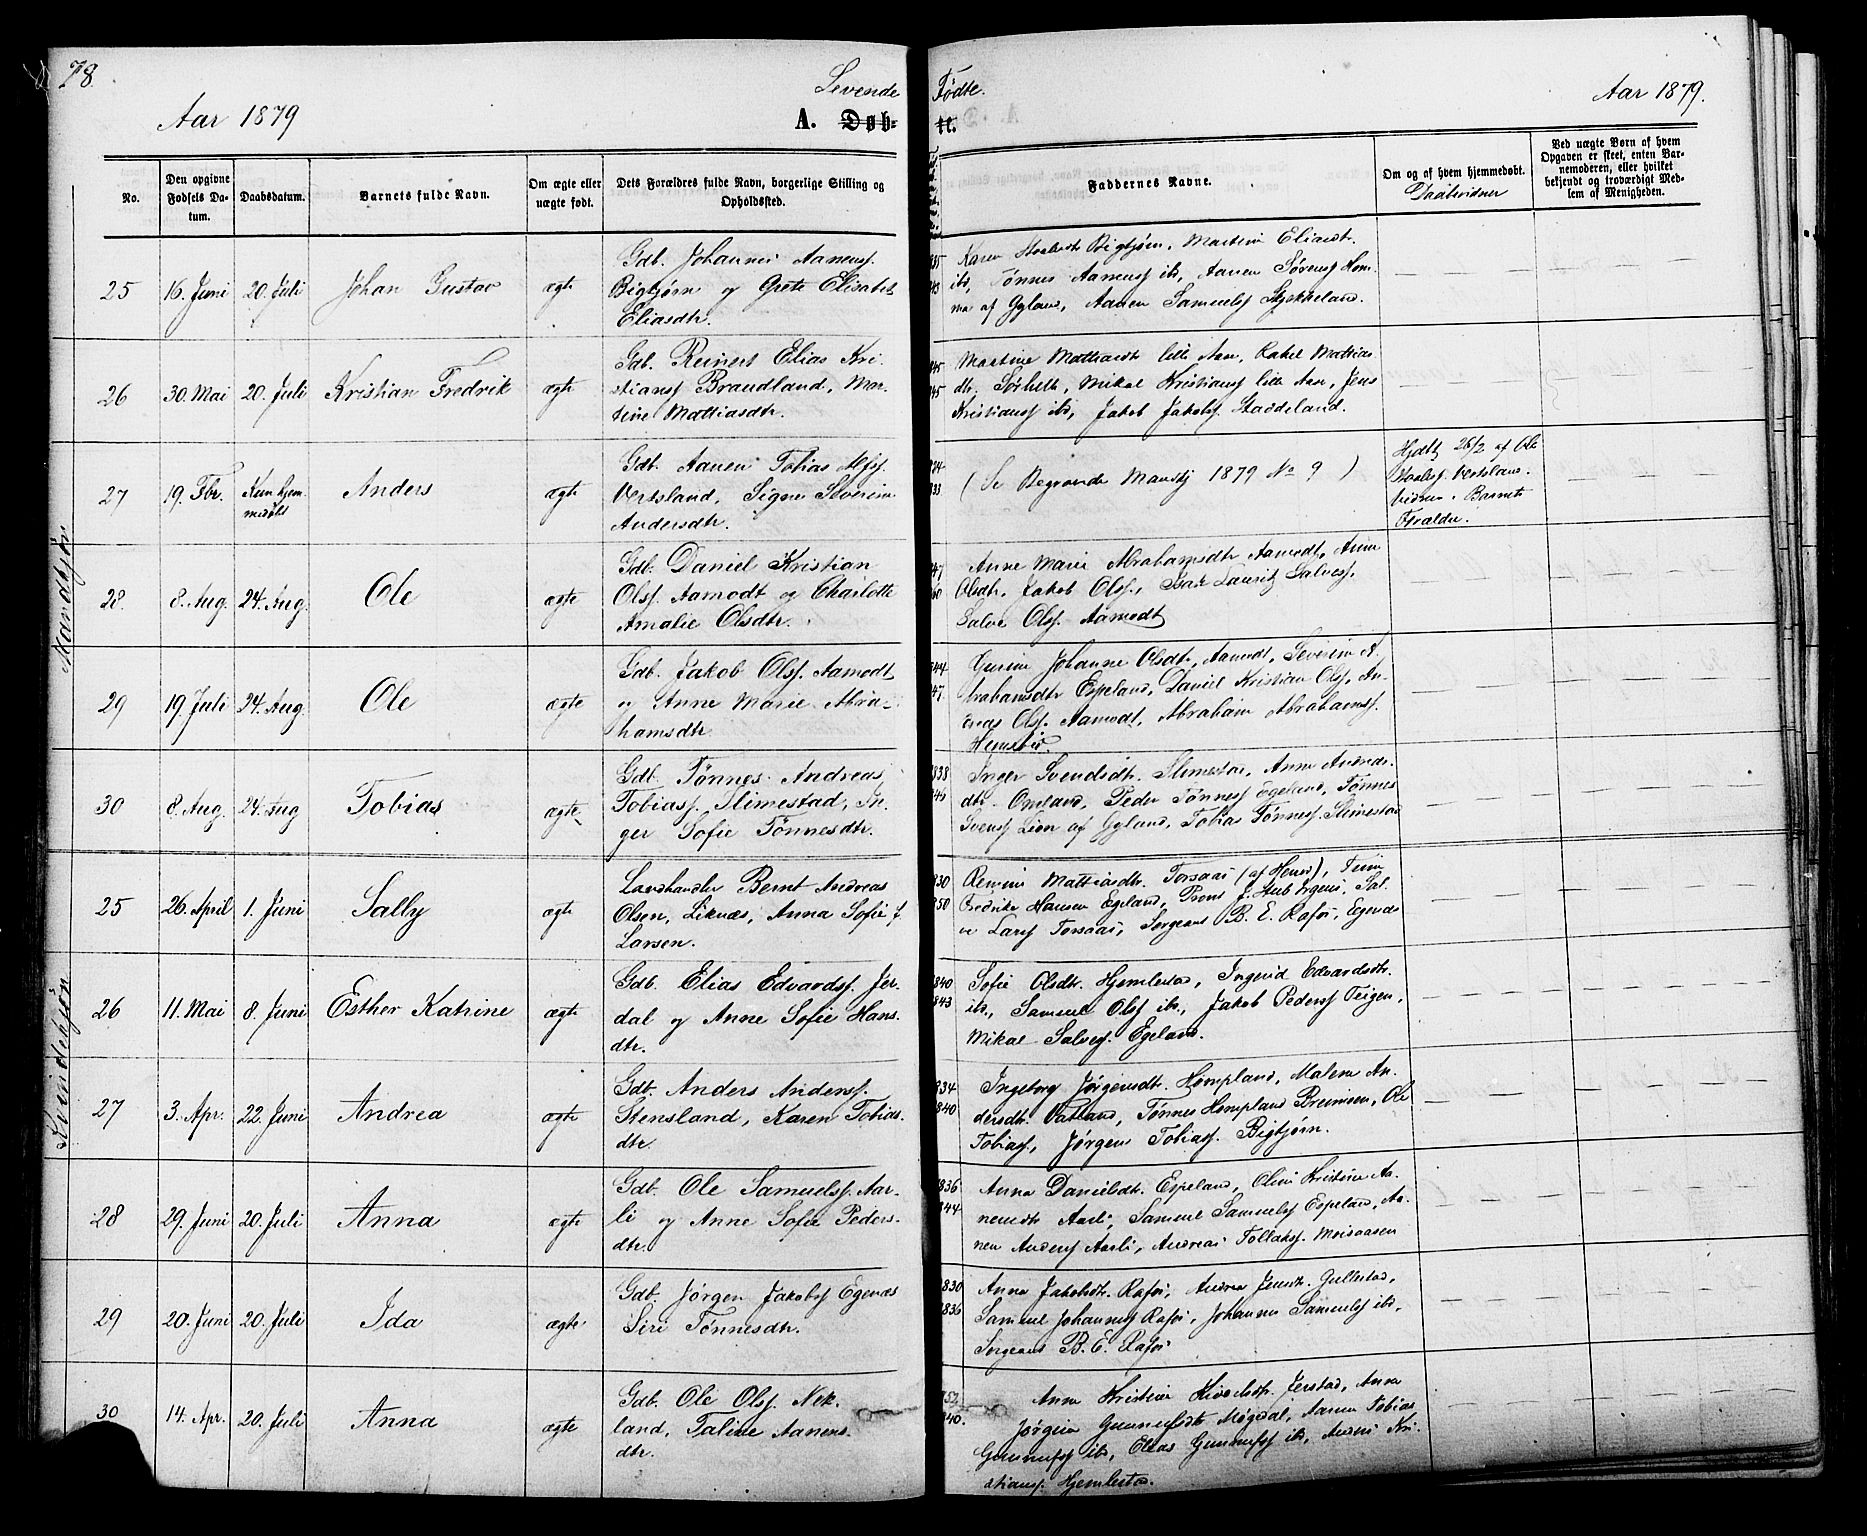 78.
Levende Fødte.
Aar 1879
A. Døbte.
Aar 1879.
No.
Den opgivne Fødsels Datum.
Daabsdatum.
Barnets fulde Navn.
Om ægte eller uægte født.
Dets Forældres fulde Navn, borgerlige Stilling og Opholdssted.
Faddernes Navne.
Om og af hvem hjemmedøbt.
Daabsvidner
Ved uægte Børn af hvem Opgaven er skeet, enten Barnemoderen, eller hvilket bekjendt og troværdigt Medlem af Menigheden.
Mandkjøn
25 16. Juni 20. Juli Johan Gustav ægte
Gdb. Johannes Aanensf.
Bigtjørn og Grete Elisabet
Eliasdtr.
Karen Bigtjørn, Martine Eliasdtr.
ibd, Tønnes Aanensf ibd, Aanen Sørensf Hom-
ma af Gyland, Aanen Samuelsf Stykkeland.
26 30. Mai 20. Juli Kristian Fredrik ægte
Gdb. Reinert Elias Kri-
stiansf Braudland, Mar-
tine Mattiasdtr.
Martine Mathiasdtr lille Aan, Rakel Mattias
dtr. Mikal Kristiansf lille Aan, Jens
Kristiansf ibd, Jakob Jakobsf. Staddeland.
27 19. Fbr. Kun hjem-
medøbt Anders ægte
Gdb. Aanen Tobias Alfsf.
Vertsland, Signe Severine
Andersdtr.
(Se Begravede Mandkj 1879 No 9)
Hjdbt 26/2 af Ole
Vestsland.
Vidner. Barnets
Forældre.
28. 8. Aug. 24. Aug. Ole ægte
Gdb. Daniel Kristian
Olsf. Aamodt og Charlotte
Amalie Olsdtr.
Anne Marie Abrahamsdtr Aamodt, Anne
Olsdtr, Jakob Olsf., Isak Lauritz Salvesf.
Salve Olsf. Aamodt
29 19. Juli 24. Aug. Ole ægte
Gdb. Jakob Olsf. Aamodt
og Anne Marie Abra-
hamsdtr.
Gurine Johanne Olsdtr, Aamodt, Severine A-
brahamsdtr Espeland, Daniel Kristian Olsf, An-
dreas Olsf. Aamodt, Abraham Abrahamsf.
30 8. Aug. 24. Aug Tobias ægte
Gdb. Tønnes Andreas
Tobiasf. Slimestad, In-
ger Sofie Tønnesdtr.
Inger Svendsdtr. Slimestad, Anne Andreas-
dtr. Omland, Peder Tønnesf Egeland, Tønnes
Svensf Lien af Gyland, Tobias Tønnesf. Slimestad
Kvindekjøn
25 26. April 1. Juni Sally ægte
Landhandler Bernt Andreas
Olsen, Liknæs, Anna Sofie f.
Larsen.
Mattiasdtr. Torsaas (af Herred),
Fredrikke Hansen Egeland, Sal-
ve Larsf Torsaas, Sergeant B. E. Rafos, Egenæs
26 11. Mai 8. Juni Esther Katrine ægte
Gdb. Elias Edvardsf. Jer-
dal og Anne Sofie Hans-
dtr.
1840
1843
Sofie Olsdtr. Hjemlestad, Ingerid Edvardsdtr.
ibd., Samuel Olsf ibd., Jakob Pedersf Teigen,
Mikal Salvesf. Egeland.
27 3. Apr. 22. Juni Andrea ægte
Gdb. Anders Andersf.
Stensland, Karen Tobias-
dtr.
Ingeborg Jørgensdtr. Hompland, Malene An-
dersdtr. Vatland, Tønnes Hompland Breimoen, Ole
Tobiasf, Jørgen Tobiasf. Bigtjørn.
28 29. Juni 20. Juli Anna ægte
Gdb. Ole Samuelsf. Aar-
li og Anne Sofie Peders-
dtr.
Anna Danielsdtr. Espeland, Oline Kristine Aa-
nensdtr Aarli, Samuel Samuelsf Espeland, Aa-
nen Andersf Aarli, Andreas Tollaksf. Moisaasen
29 20. Juni 20. Juli Ida ægte
Gdb. Jørgen Jakobsf Egenæs
Siri Tønnesdtr.
1830
1836
Anna Jakobsdtr. Rafos, Andrea Jensdtr. Gullestad,
Samuel Johannesf Rafos, Johannes Samuelsf ibd,
Sergeant B. E. Rafos
30 14. Apr. 20. Juli Anna ægte
Gdb. Ole Olsf. Nek-
land, Taline Aanens-
dtr.
Anne Kristine Jerstad, Anna
Jørgine Gunnufsdtr Møgedal, Aanen Tobias
Gunnufsf ibd, Elias Gunnufsf ibd, Andreas Kri-
stiansf. Hjemlestad.